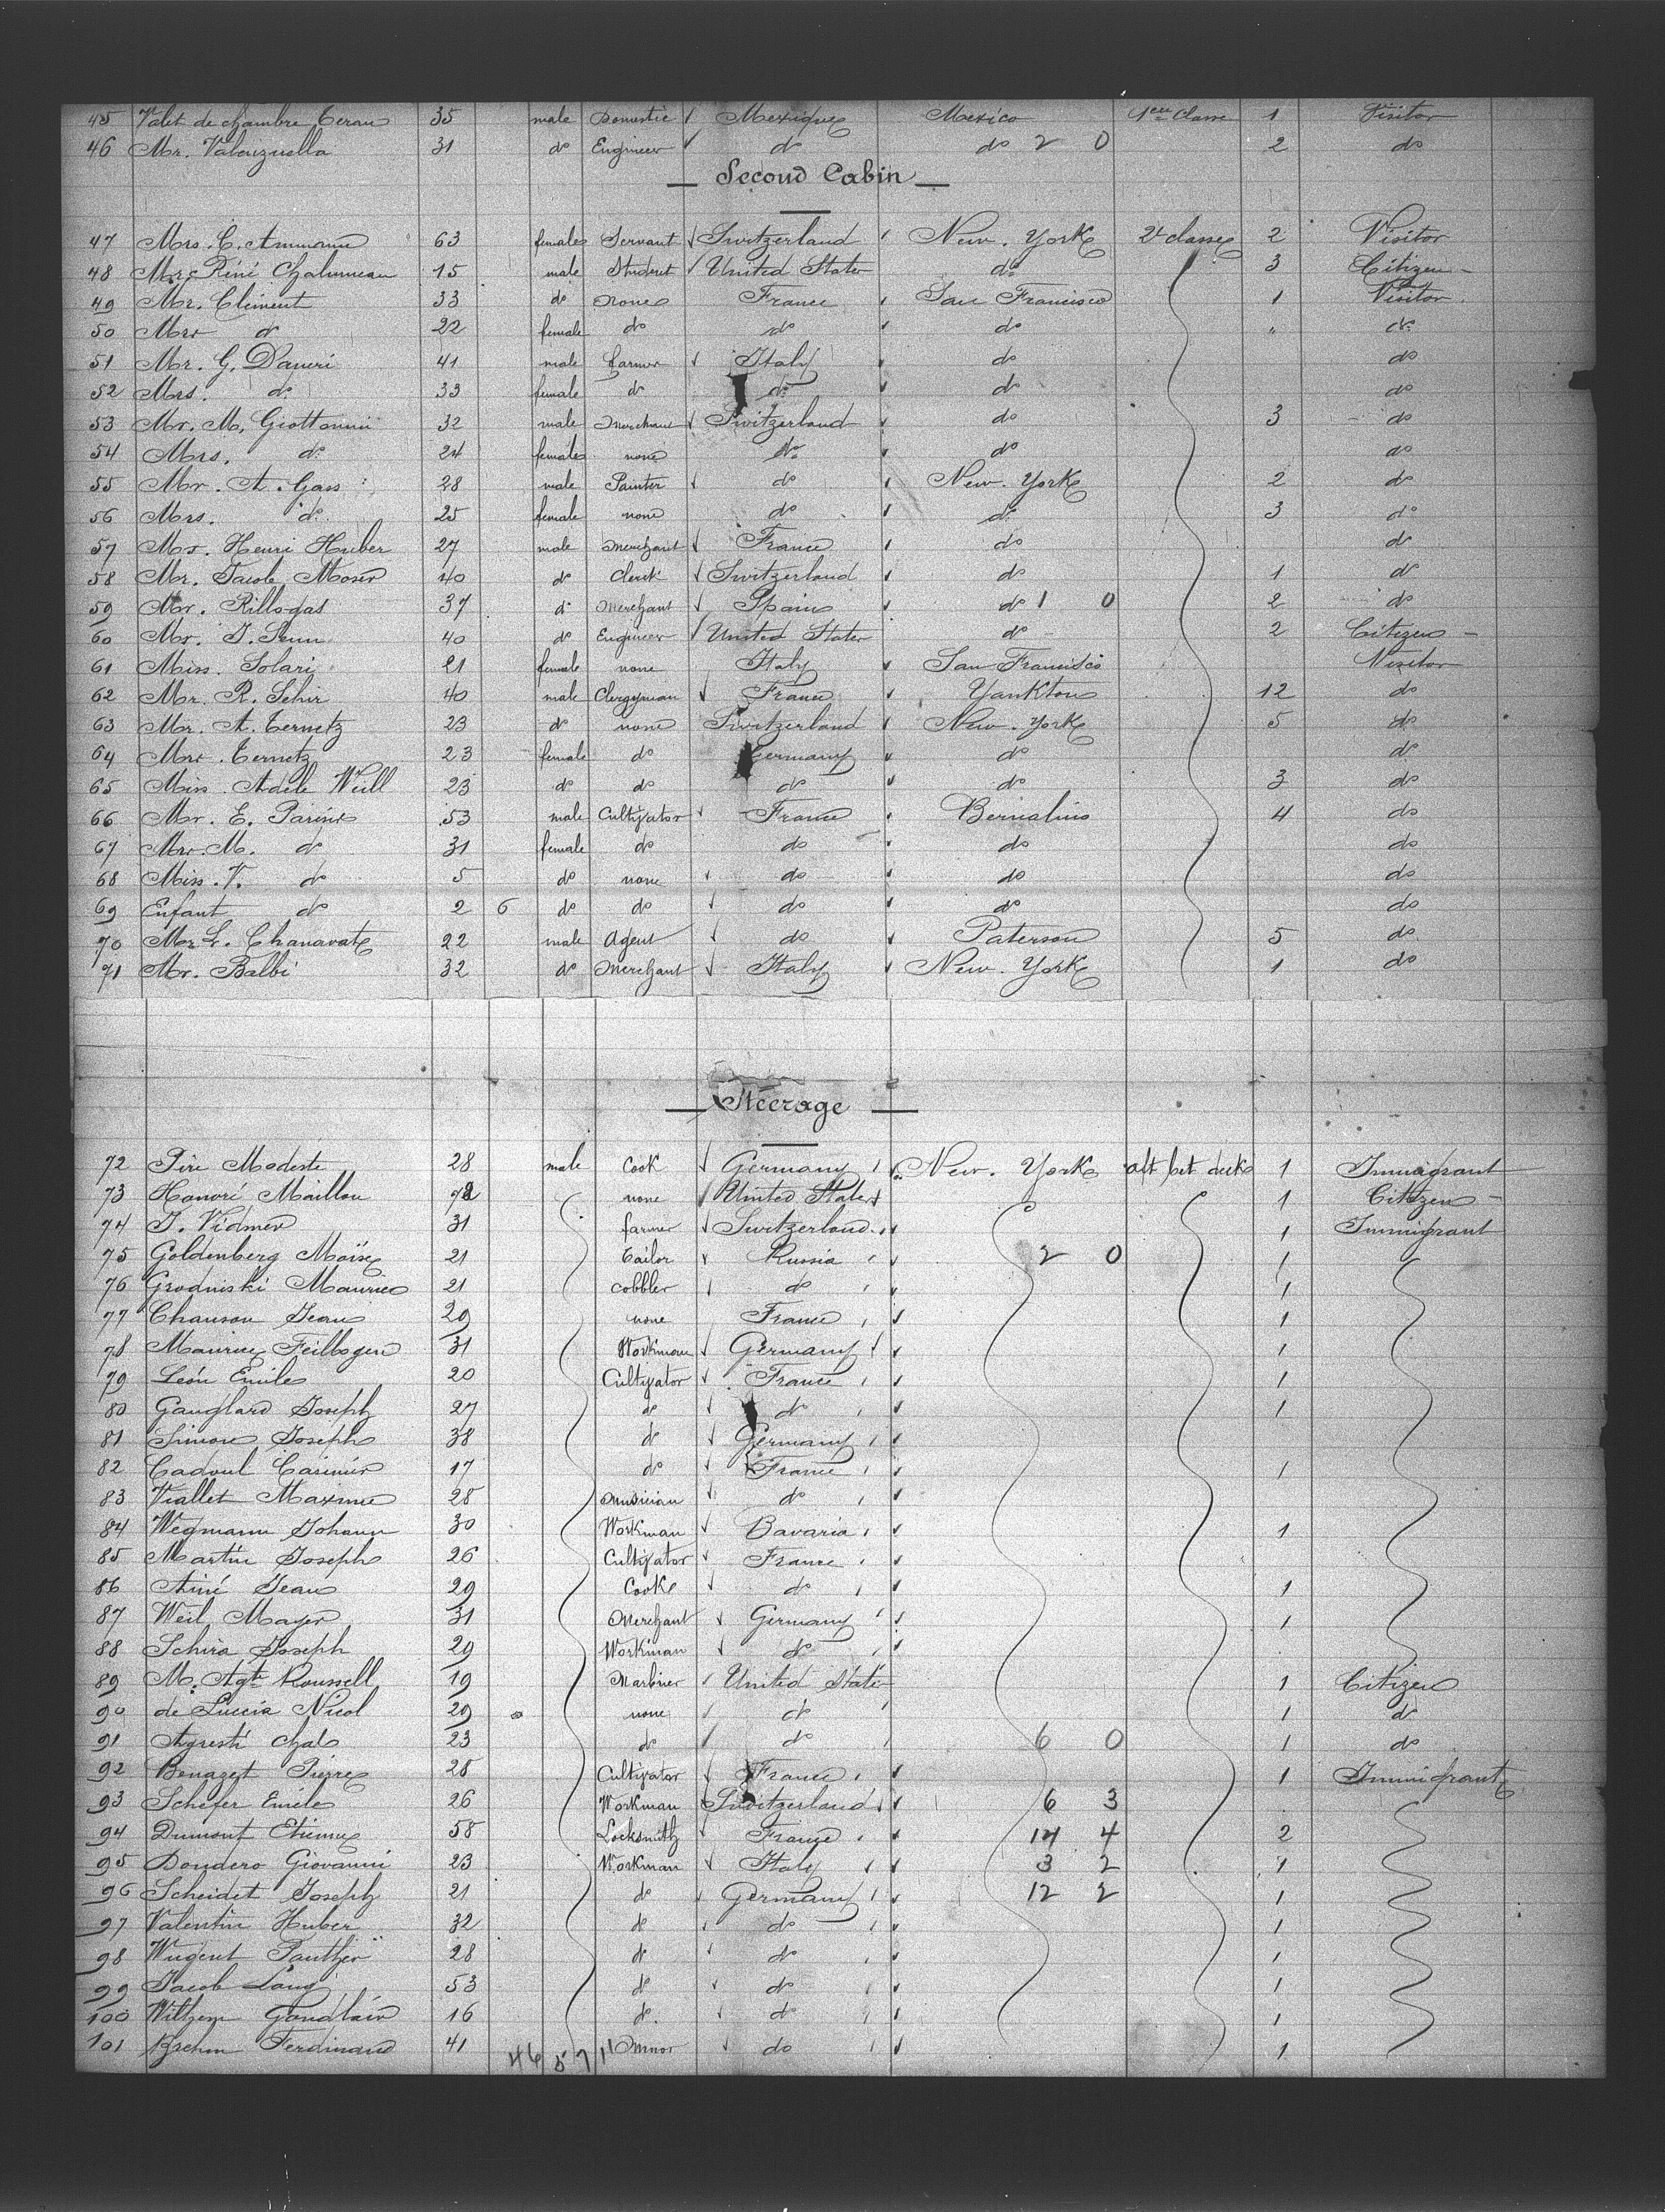 45 Valet de chambre Teran 35 male Domestic Mexique Mexico 1ere Classe 1 Visitor
46 Mr. Valenzuella 31 do Engineer do do 2 0 2 do
Second Cabin
47 Mrs. C. Ammann 63 female Servant Switzerland New. York 2d classe 2 Visitor
48 Mr. Réné Chalumeau 15 male Student United States do 3 Citizen
49 Mr. Clément 33 do none France San Francisco 1 Visitor
50 Mrs do 22 female do do do " do
51 Mr. G. Daneri 41 male farmer Italy do do
52 Mrs. do 33 female do do do do
53 Mr. M. Giottonini 32 male merchant Switzerland do 3 do
54 Mrs. do 24 female none do do do
55 Mr. A. Gass 28 male Painter do New. York 2 do
56 Mrs. do 25 female none do do 3 do
57 Mr. Henri Huber 27 male merchant France do do
58 Mr. Jacob Moser 40 do Clerk Switzerland do 1 do
59 Mr. 37 do merchant Spain do 1 0 2 do
60 Mr. J. 40 do Engineer United States do 2 Citizen
61 Miss. Solari 21 female none Italy San Francisco Visitor
62 Mr. R. 40 male Clergyman France Yankton 12 do
63 Mr. A. Ternetz 23 do none Switzerland New. York 5 do
64 Mrs. Ternetz 23 female do Germany do do
65 Miss. Adèle Weill 23 do do do do 3 do
66 Mr. E. 53 male Cultivator France 4 do
67 Mrs. M. do 31 female do do do do
68 Miss. V. do 5 do none do do do
69 Enfant do 2 6 do do do do do
70 Mr L. Chanavat 22 male Agent do Paterson 5 do
71 Mr. Balbi 32 do merchant Italy New. York 1 do
Steerage
72 Modeste 28 male Cook Germany New. York aft bet decks 1 Immigrant
73 Honoré Maillou none United States 1 Citizen
74 J. Vidmer 31 farmer Switzerland 1 Immigrant
75 Goldenberg Moïse 21 Tailor Russia 2 0 1
76 Grodniski Maurice 21 cobbler do 1
77 Chanson Jean 29 none France 1
78 Maurice Feilbogen 31 Workman Germany 1
79 Léon Emile 20 Cultivator France 1
80 Gauglard Joseph 27 do do 1
81 Simon Joseph 38 do Germany
82 Cadoul Casimir 17 do France 1
83 Viallet Maxime 28 musician do
84 Wegmann Johann 30 Workman Bavaria 1
85 Martin Joseph 26 Cultivator France
86 Aimé Jean 29 Cook do 1
87 Weil Mayer 31 Merchant Germany 1
88 Schira Joseph 29 Workman do
89 M. Agte Roussell 19 Marbrier United States 1 Citizen
90 de Luccia Nicol 29 none do 1 do
91 Agresti Chals 23 do do 6 0 1 do
92 Benazet Pierre 28 Cultivator France 1 Immigrant
93 Schefer Emile 26 Workman Switzerland 6 3
94 Dumont Etienne 58 Locksmith France 14 4 2
95 Dondero Giovanni 23 Workman Italy 3 2 1
96 Scheidet Joseph 21 do Germany 12 2 1
97 Valentin Huber 32 do do 1
98 28 do do 1
99 Jacob Lang 53 do do 1
100 16 do do 1
101 Brehm Ferdinand 41 do 1